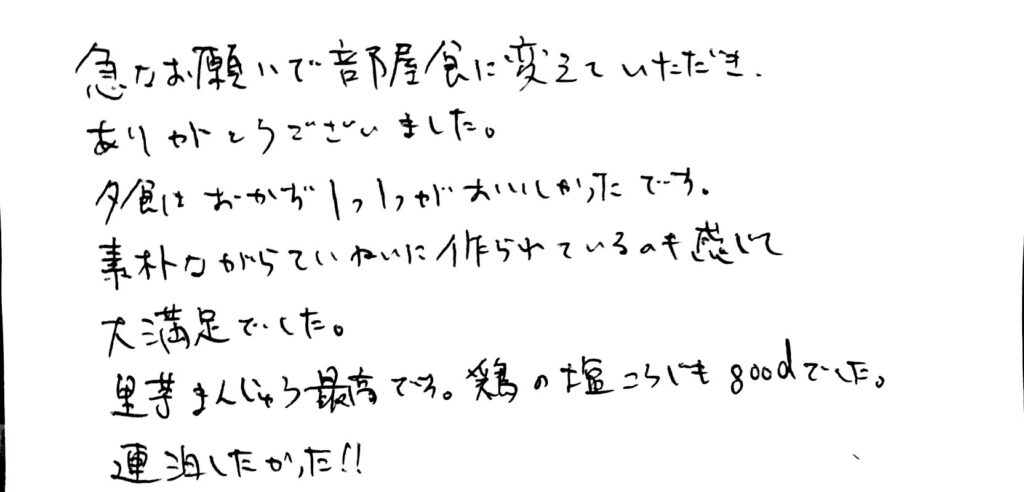 急なお願いで部屋食に変えていただき、
ありがとうございました。
夕食は おかず1つ1つがおいしかったです。
素朴ながらていねいに作られているのを感じて
大満足でした。
里芋まんじゅう最高です。鶏の塩こうじも goodでした。
連泊したかった!!